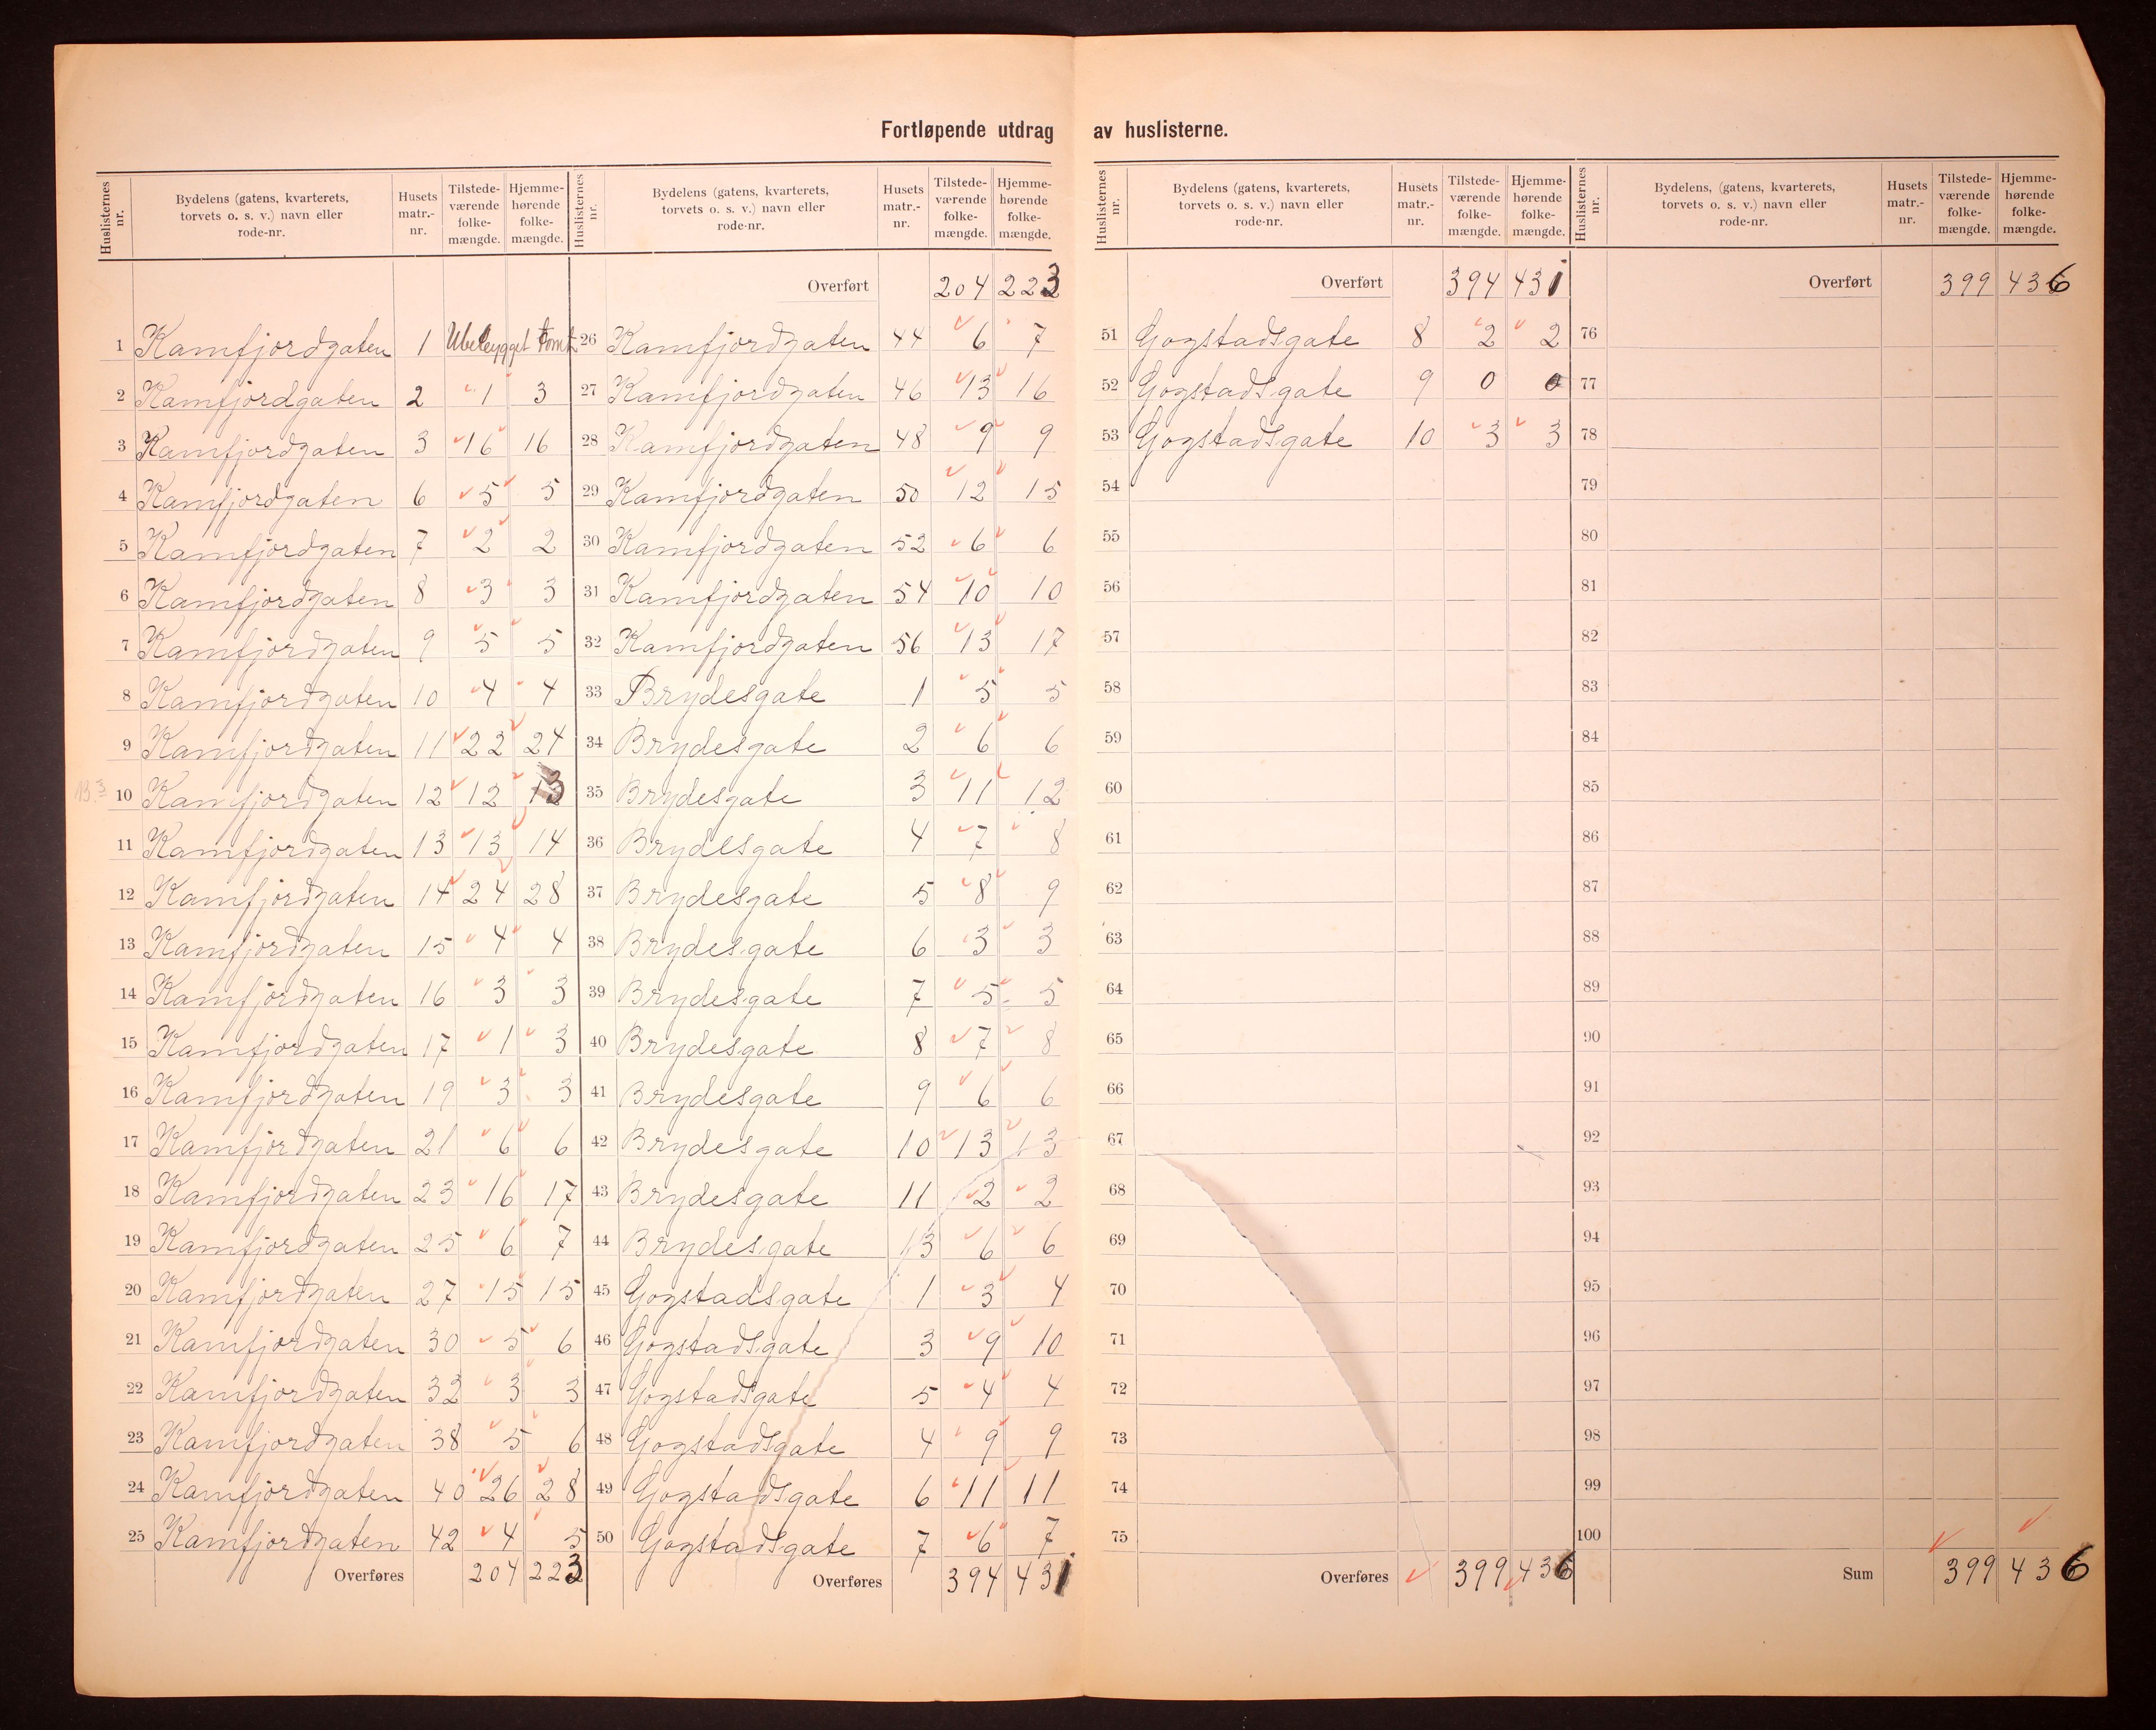 Fortløpende utdrag av huslisterne.
Huslisternes nr. | Bydelens (gatens, kvarterets, torvets o. s. v.) navn eller rode-nr. | Husets matr.-nr. | Tilstede-værende folke-mængde. | Hjemme-hørende folke-mængde.
1 Kamfjordgaten 1 Ubebygget tomt
2 Kamfjordgaten 2 1 3
3 Kamfjordgaten 3 16 16
4 Kamfjordgaten 6 5 5
5 Kamfjordgaten 7 2 2
6 Kamfjordgaten 8 3 3
7 Kamfjordgaten 9 5 5
8 Kamfjordgaten 10 4 4
9 Kamfjordgaten 11 22 24
10 Kamfjordgaten 12 12 13
11 Kamfjordgaten 13 13 14
12 Kamfjordgaten 14 24 28
13 Kamfjordgaten 15 4 4
14 Kamfjordgaten 16 3 3
15 Kamfjordgaten 17 1 3
16 Kamfjordgaten 19 3 3
17 Kamfjordgaten 21 6 6
18 Kamfjordgaten 23 16 17
19 Kamfjordgaten 25 6 7
20 Kamfjordgaten 27 15 15
21 Kamfjordgaten 30 5 6
22 Kamfjordgaten 32 3 3
23 Kamfjordgaten 38 5 6
24 Kamfjordgaten 40 26 28
25 Kamfjordgaten 42 4 5
Overføres 204 223
Huslisternes nr. | Bydelens (gatens, kvarterets, torvets o. s. v.) navn eller rode-nr. | Husets matr.-nr. | Tilstede-værende folke-mængde. | Hjemme-hørende folke-mængde.
Overført 204 223
26 Kamfjordgaten 44 6 7
27 Kamfjordgaten 46 13 16
28 Kamfjordgaten 48 9 9
29 Kamfjordgaten 50 12 15
30 Kamfjordgaten 52 6 6
31 Kamfjordgaten 54 10 10
32 Kamfjordgaten 56 13 17
33 Brydesgate 1 5 5
34 Brydesgate 2 6 6
35 Brydesgate 3 11 12
36 Brydesgate 4 7 8
37 Brydesgate 5 8 9
38 Brydesgate 6 3 3
39 Brydesgate 7 5 5
40 Brydesgate 8 7 8
41 Brydesgate 9 6 6
42 Brydesgate 10 13 13
43 Brydesgate 11 2 2
44 Brydesgate 13 6 6
45 Gogstadsgate 1 3 4
46 Gogstadsgate 3 9 10
47 Gogstadsgate 5 4 4
48 Gogstadsgate 4 9 9
49 Gogstadsgate 6 11 11
50 Gogstadsgate 7 6 7
Overføres 394 431
Huslisternes nr. | Bydelens (gatens, kvarterets, torvets o. s. v.) navn eller rode-nr. | Husets matr.-nr. | Tilstede-værende folke-mængde. | Hjemme-hørende folke-mængde.
Overført 394 431
51 Gogstadsgate 8 2 2
52 Gogstadsgate 9 0 0
53 Gogstadsgate 10 3 3
54
55
56
57
58
59
60
61
62
63
64
65
66
67
68
69
70
71
72
73
74
75
Overføres 399 436
Huslisternes nr. | Bydelens, (gatens, kvarterets, torvets o. s. v.) navn eller rode-nr. | Husets matr.-nr. | Tilstede-værende folke-mængde. | Hjemme-hørende folke-mængde.
Overført 399 436
76
77
78
79
80
81
82
83
84
85
86
87
88
89
90
91
92
93
94
95
96
97
98
99
100
Sum 399 436